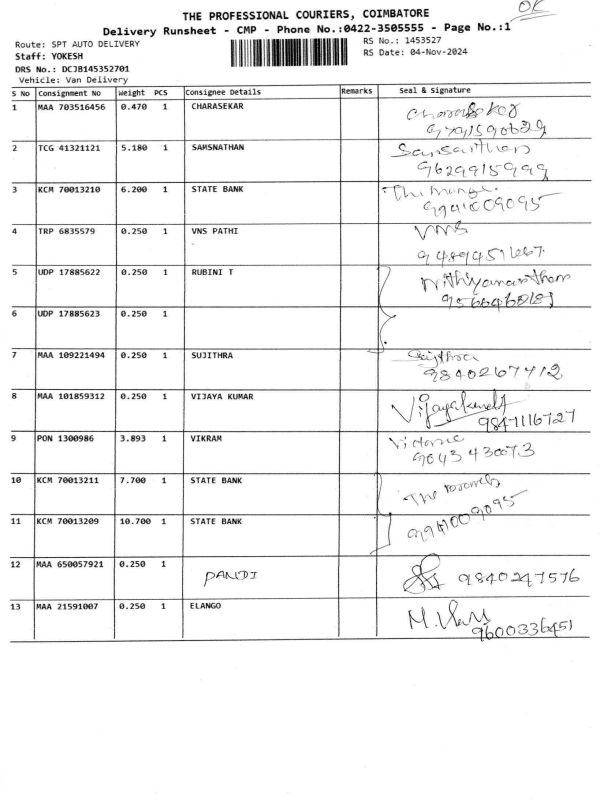 OK
THE PROFESSIONAL COURIERS, COIMBATORE
Delivery Runsheet - CMP - Phone No.:0422-3505555 - Page No.:1
Route: SPT AUTO DELIVERY RS No.: 1453527
Staff: YOKESH RS Date: 04-Nov-2024
DRS No.: DCJB145352701
Vehicle: Van Delivery
S No Consignment No Weight PCS Consignee Details Remarks Seal & Signature
1 MAA 703516456 0.470 1 CHARASEKAR
2 TCG 41321121 5.180 1 SAMSNATHAN
9629915999
3 KCM 70013210 6.200 1 STATE BANK
4 TRP 6835579 0.250 1 VNS PATHI VMS
5 UDP 17885622 0.250 1 RUBINI T
6 UDP 17885623 0.250 1
7 MAA 109221494 0.250 1 SUJITHRA
9840267412
8 MAA 101859312 0.250 1 VIJAYA KUMAR
9847116727
9 PON 1300986 3.893 1 VIKRAM
9043430073
10 KCM 70013211 7.700 1 STATE BANK
11 KCM 70013209 10.700 1 STATE BANK
12 MAA 650057921 0.250 1 PANDI 9840247576
13 MAA 21591007 0.250 1 ELANGO
9600336451